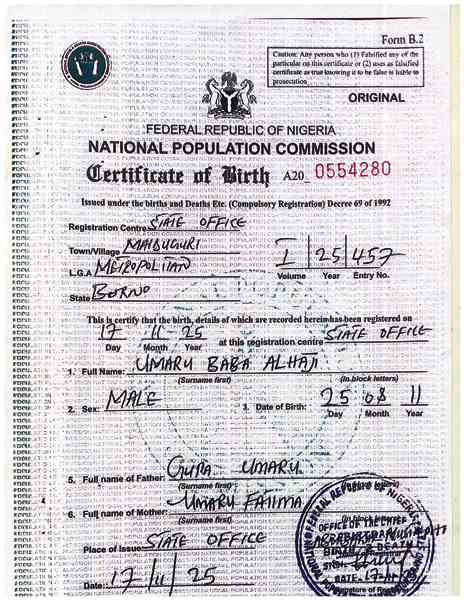 Form B.2
Caution: Any person who (1) Falsified any of the
particular on this certificate or (2) uses as falsified
certificate as true knowing it to be false is liable to
prosecution
ORIGINAL
FEDERAL REPUBLIC OF NIGERIA
NATIONAL POPULATION COMMISSION
Certificate of Birth A20 0554280
Issued under the births and Deaths Etc. (Compulsory Registration) Decree 69 of 1992
Registration Centre STATE OFFICE
Town/Village MAIDUGURI
L.G.A METROPOLITAN
State BORNO
I 25 457
Volume Year Entry No.
This is certify that the birth, details of which are recorded herein has been registered on
17 11 - 25 at this registration centre STATE OFFICE
Day Month Year
1. Full Name: UMARU BABA ALHAJI
(Surname first) (In block letters)
2. Sex: MALE 3. Date of Birth: 25 08 11
Day Month Year
5. Full name of Father: UMARU
(Surname first)
6. Full name of Mother: UMARU FATIMA
(Surname first) (In block letters)
Place of Issue STATE OFFICE
OFFICE OF THE CHIEF
Date: 17/11/25